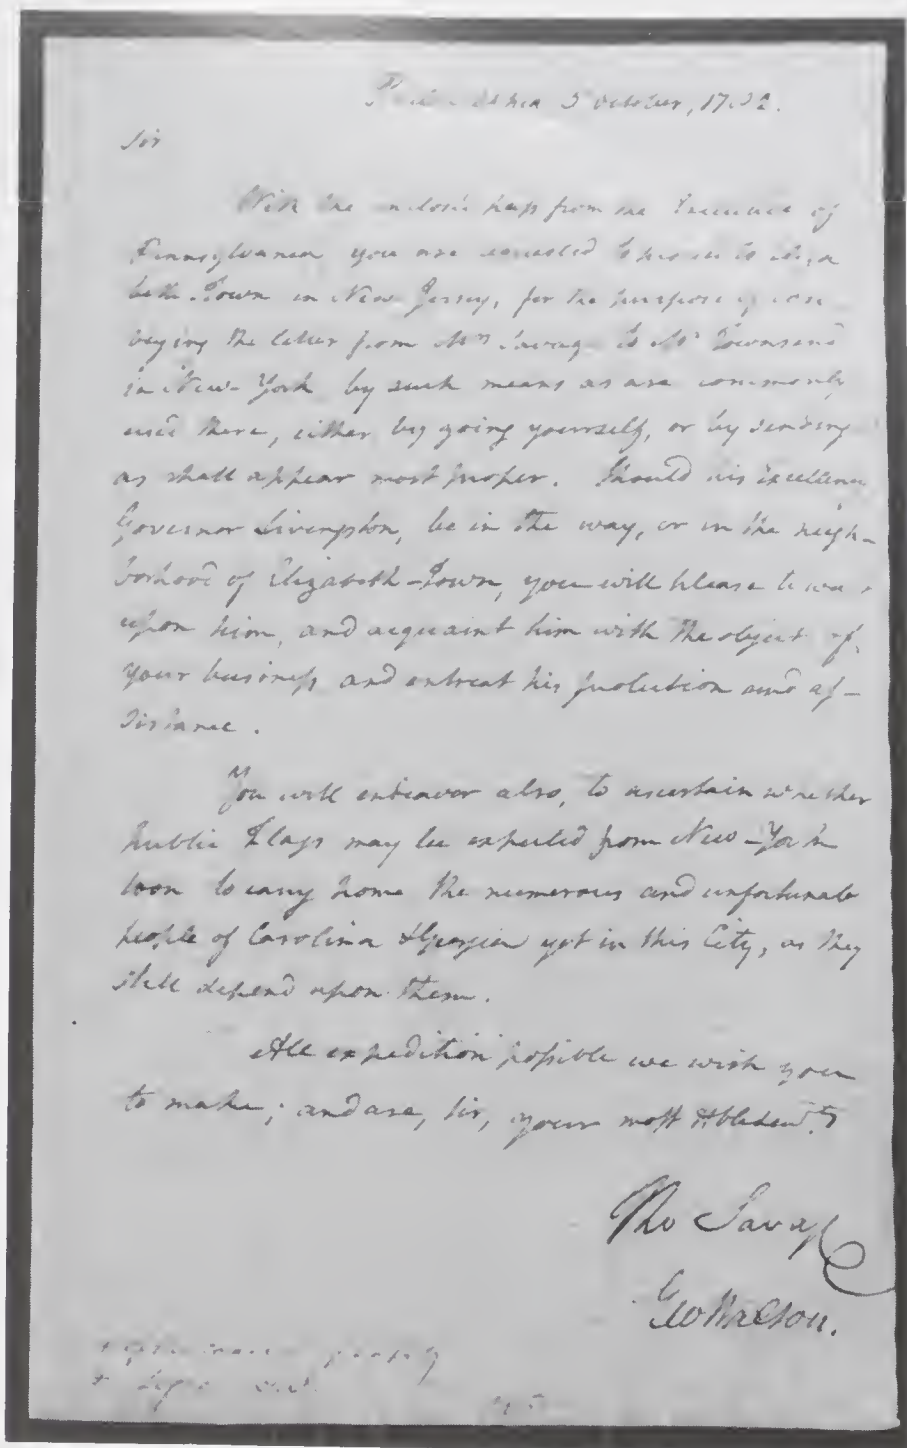 5 October, 17
Sir
With the enclosed pass from the of
Pennsylvania you are requested to to
beth Town in New Jersey, for the purpose of con
veying the letter from Mr Savage to Mr Townsend
in New-York by such means as are commonly
used there, either by going yourself, or by sending
as shall appear most proper. Should his Excellency
Governor Livingston, be in the way, or in the neigh-
borhood of Elizabeth-Town, you will please to wait
upon him, and acquaint him with the object of
your business and entreat his protection and as-
sistance.
You will endeavor also, to ascertain whether
public Flags may be expected from New-York
soon to carry home the numerous and unfortunate
people of Carolina & Georgia yet in this City, as they
still depend upon them.
All expedition possible we wish you
to make; and are, Sir, your most Hble
Tho Savage
Geo Walton.